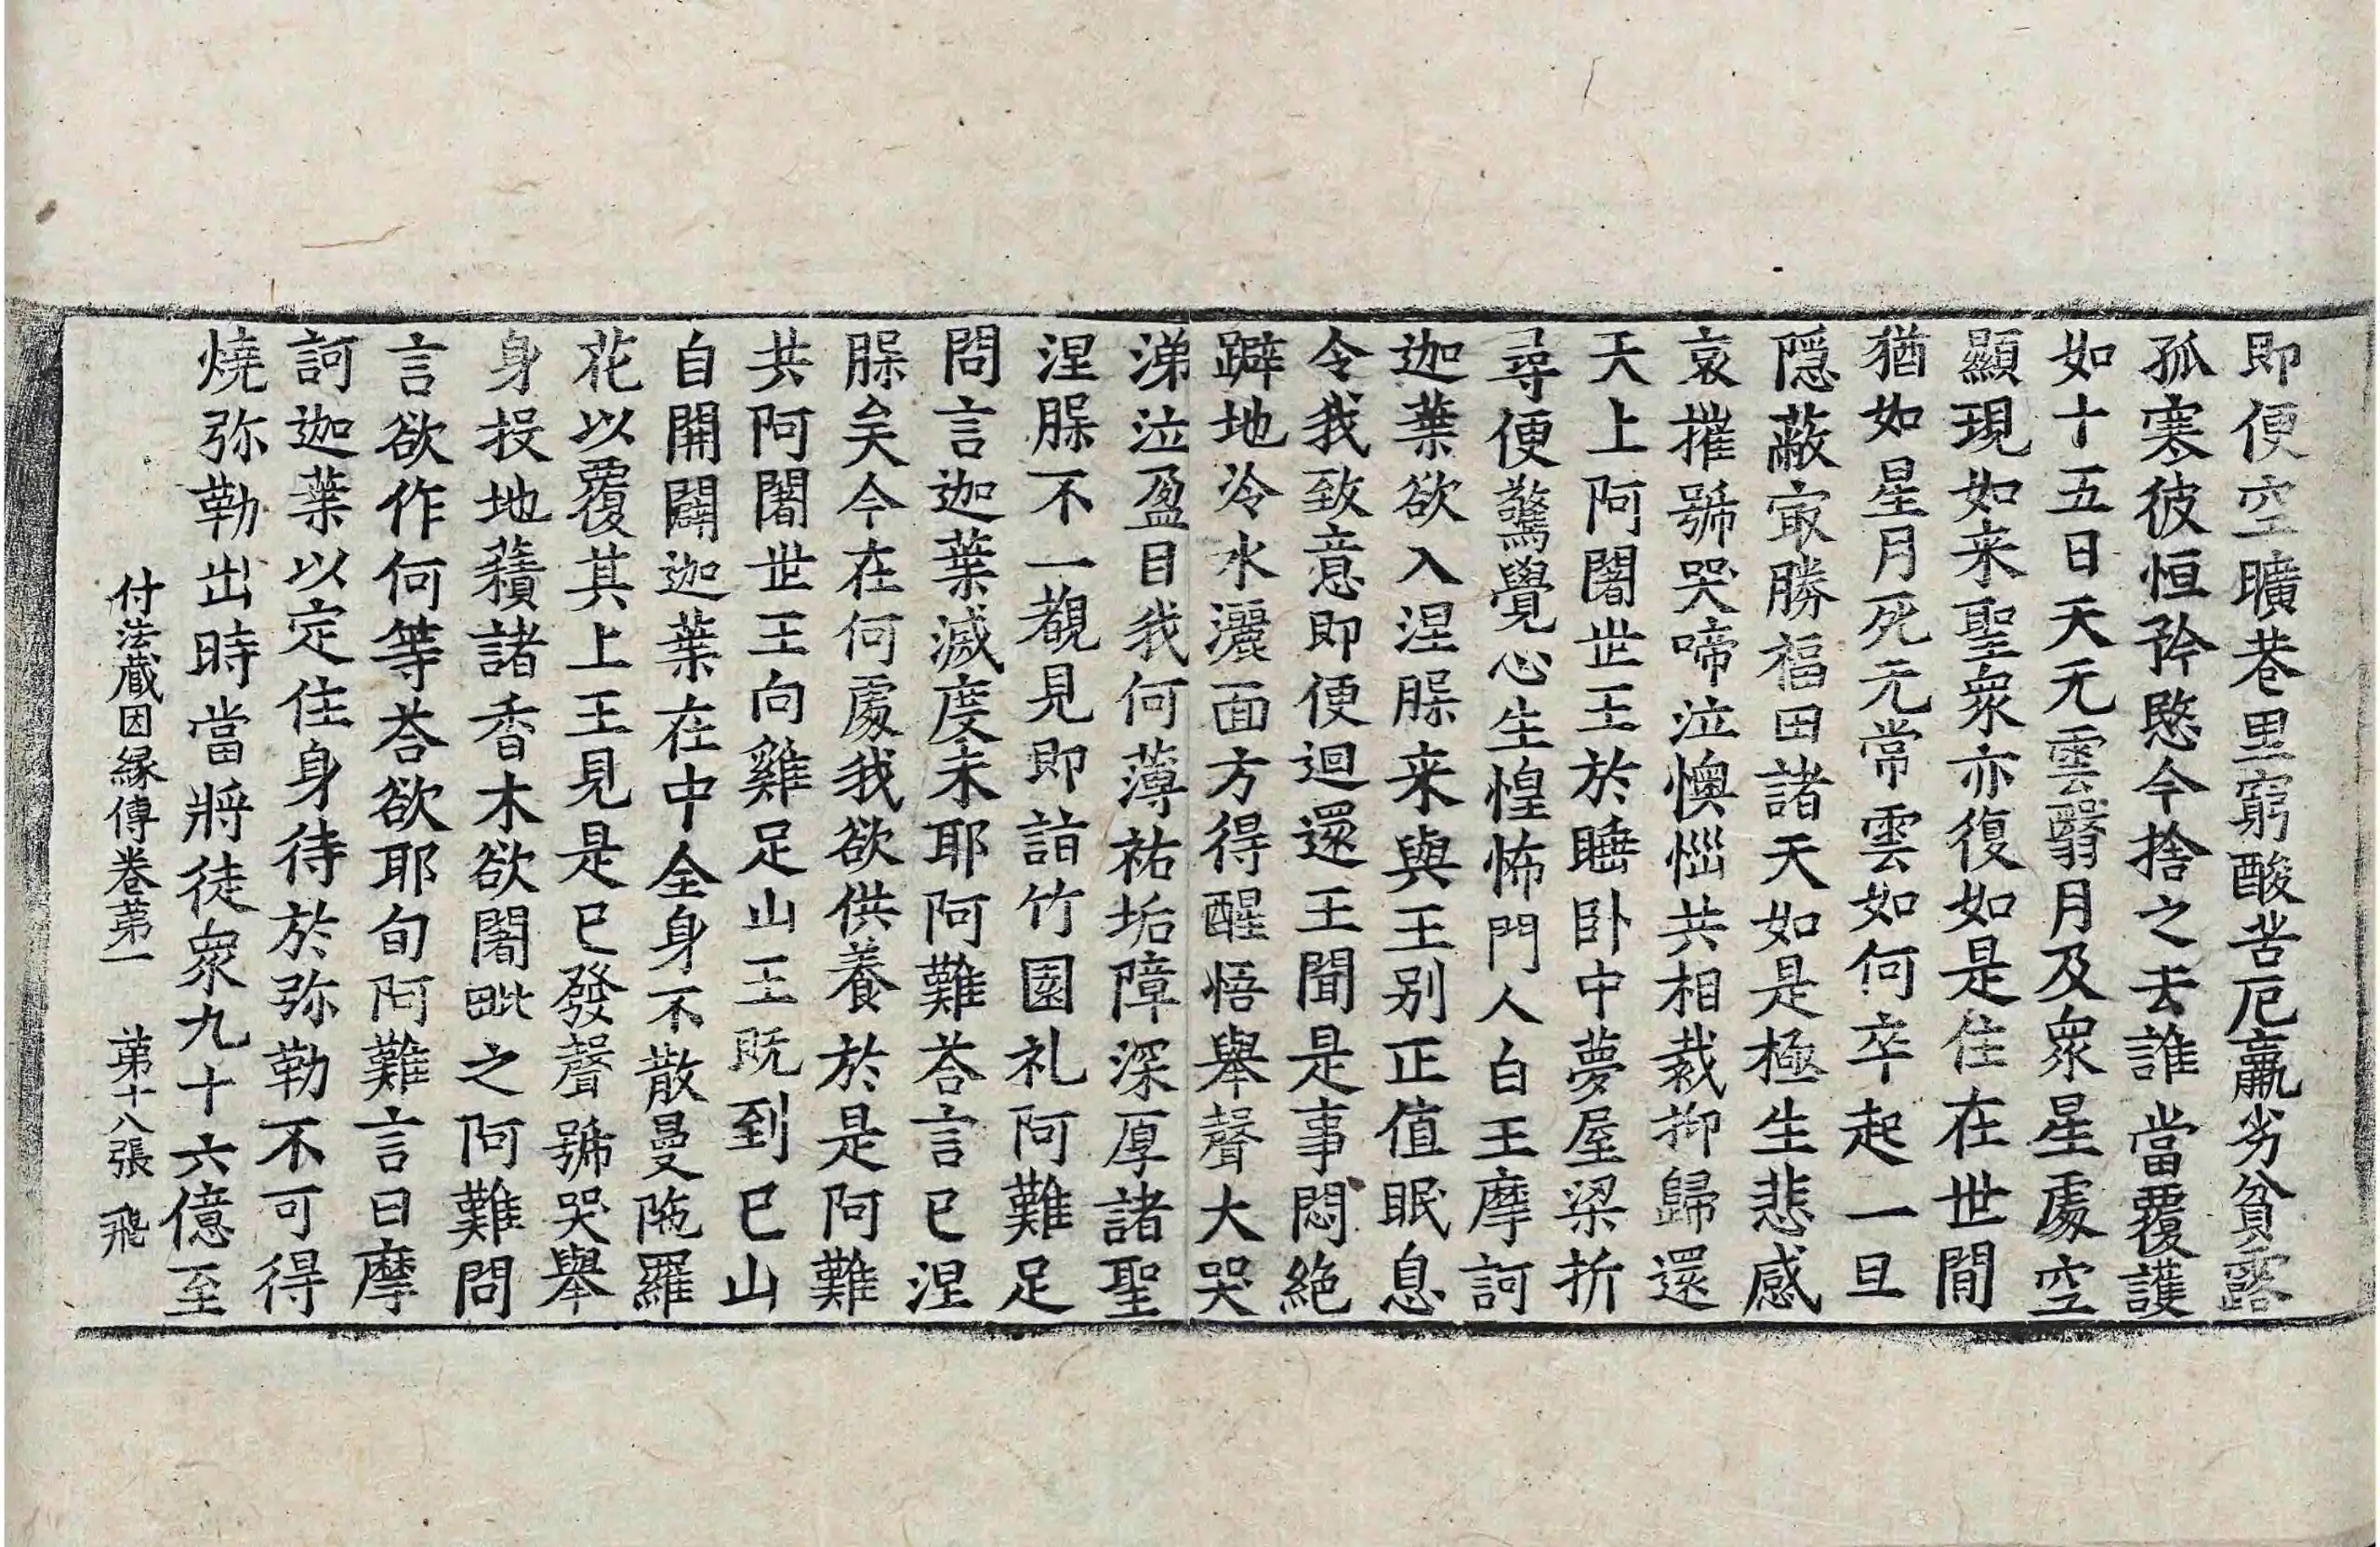 即便空曠巷里窮酸苦厄羸劣貧露
孤寒彼恒矜愍今捨之去誰當覆護
如十五日天无雲翳月及衆星處空
顯現如来聖衆亦復如是住在世間
猶如星月死无常雲如何卒起一旦
隱蔽㝡勝福田諸天如是極生悲感
哀摧號哭啼泣懊惱共相裁抑歸還
天上阿闍世王於睡卧中夢屋梁折
尋便驚覺心生惶怖門人白王摩訶
迦葉欲入涅槃来與王别正值眠息
令我致意即便迴還王聞是事悶絶
躃地冷水灑面方得醒悟舉聲大哭
涕泣盈目我何薄祐垢障深厚諸聖
涅槃不一覩見即詣竹園礼阿難足
問言迦葉滅度未耶阿難荅言已涅
槃矣今在何處我欲供養於是阿難
共阿闍世王向雞足山王既到已山
自開闢迦葉在中全身不散曼陁羅
花以覆其上王見是已發聲號哭舉
身投地𧂐諸香木欲闍毗之阿難問
言欲作何等荅欲耶旬阿難言曰摩
訶迦葉以定住身待於弥勒不可得
燒弥勒出時當將徒衆九十六億至
付法蔵因縁傳卷苐一　苐十八張　飛